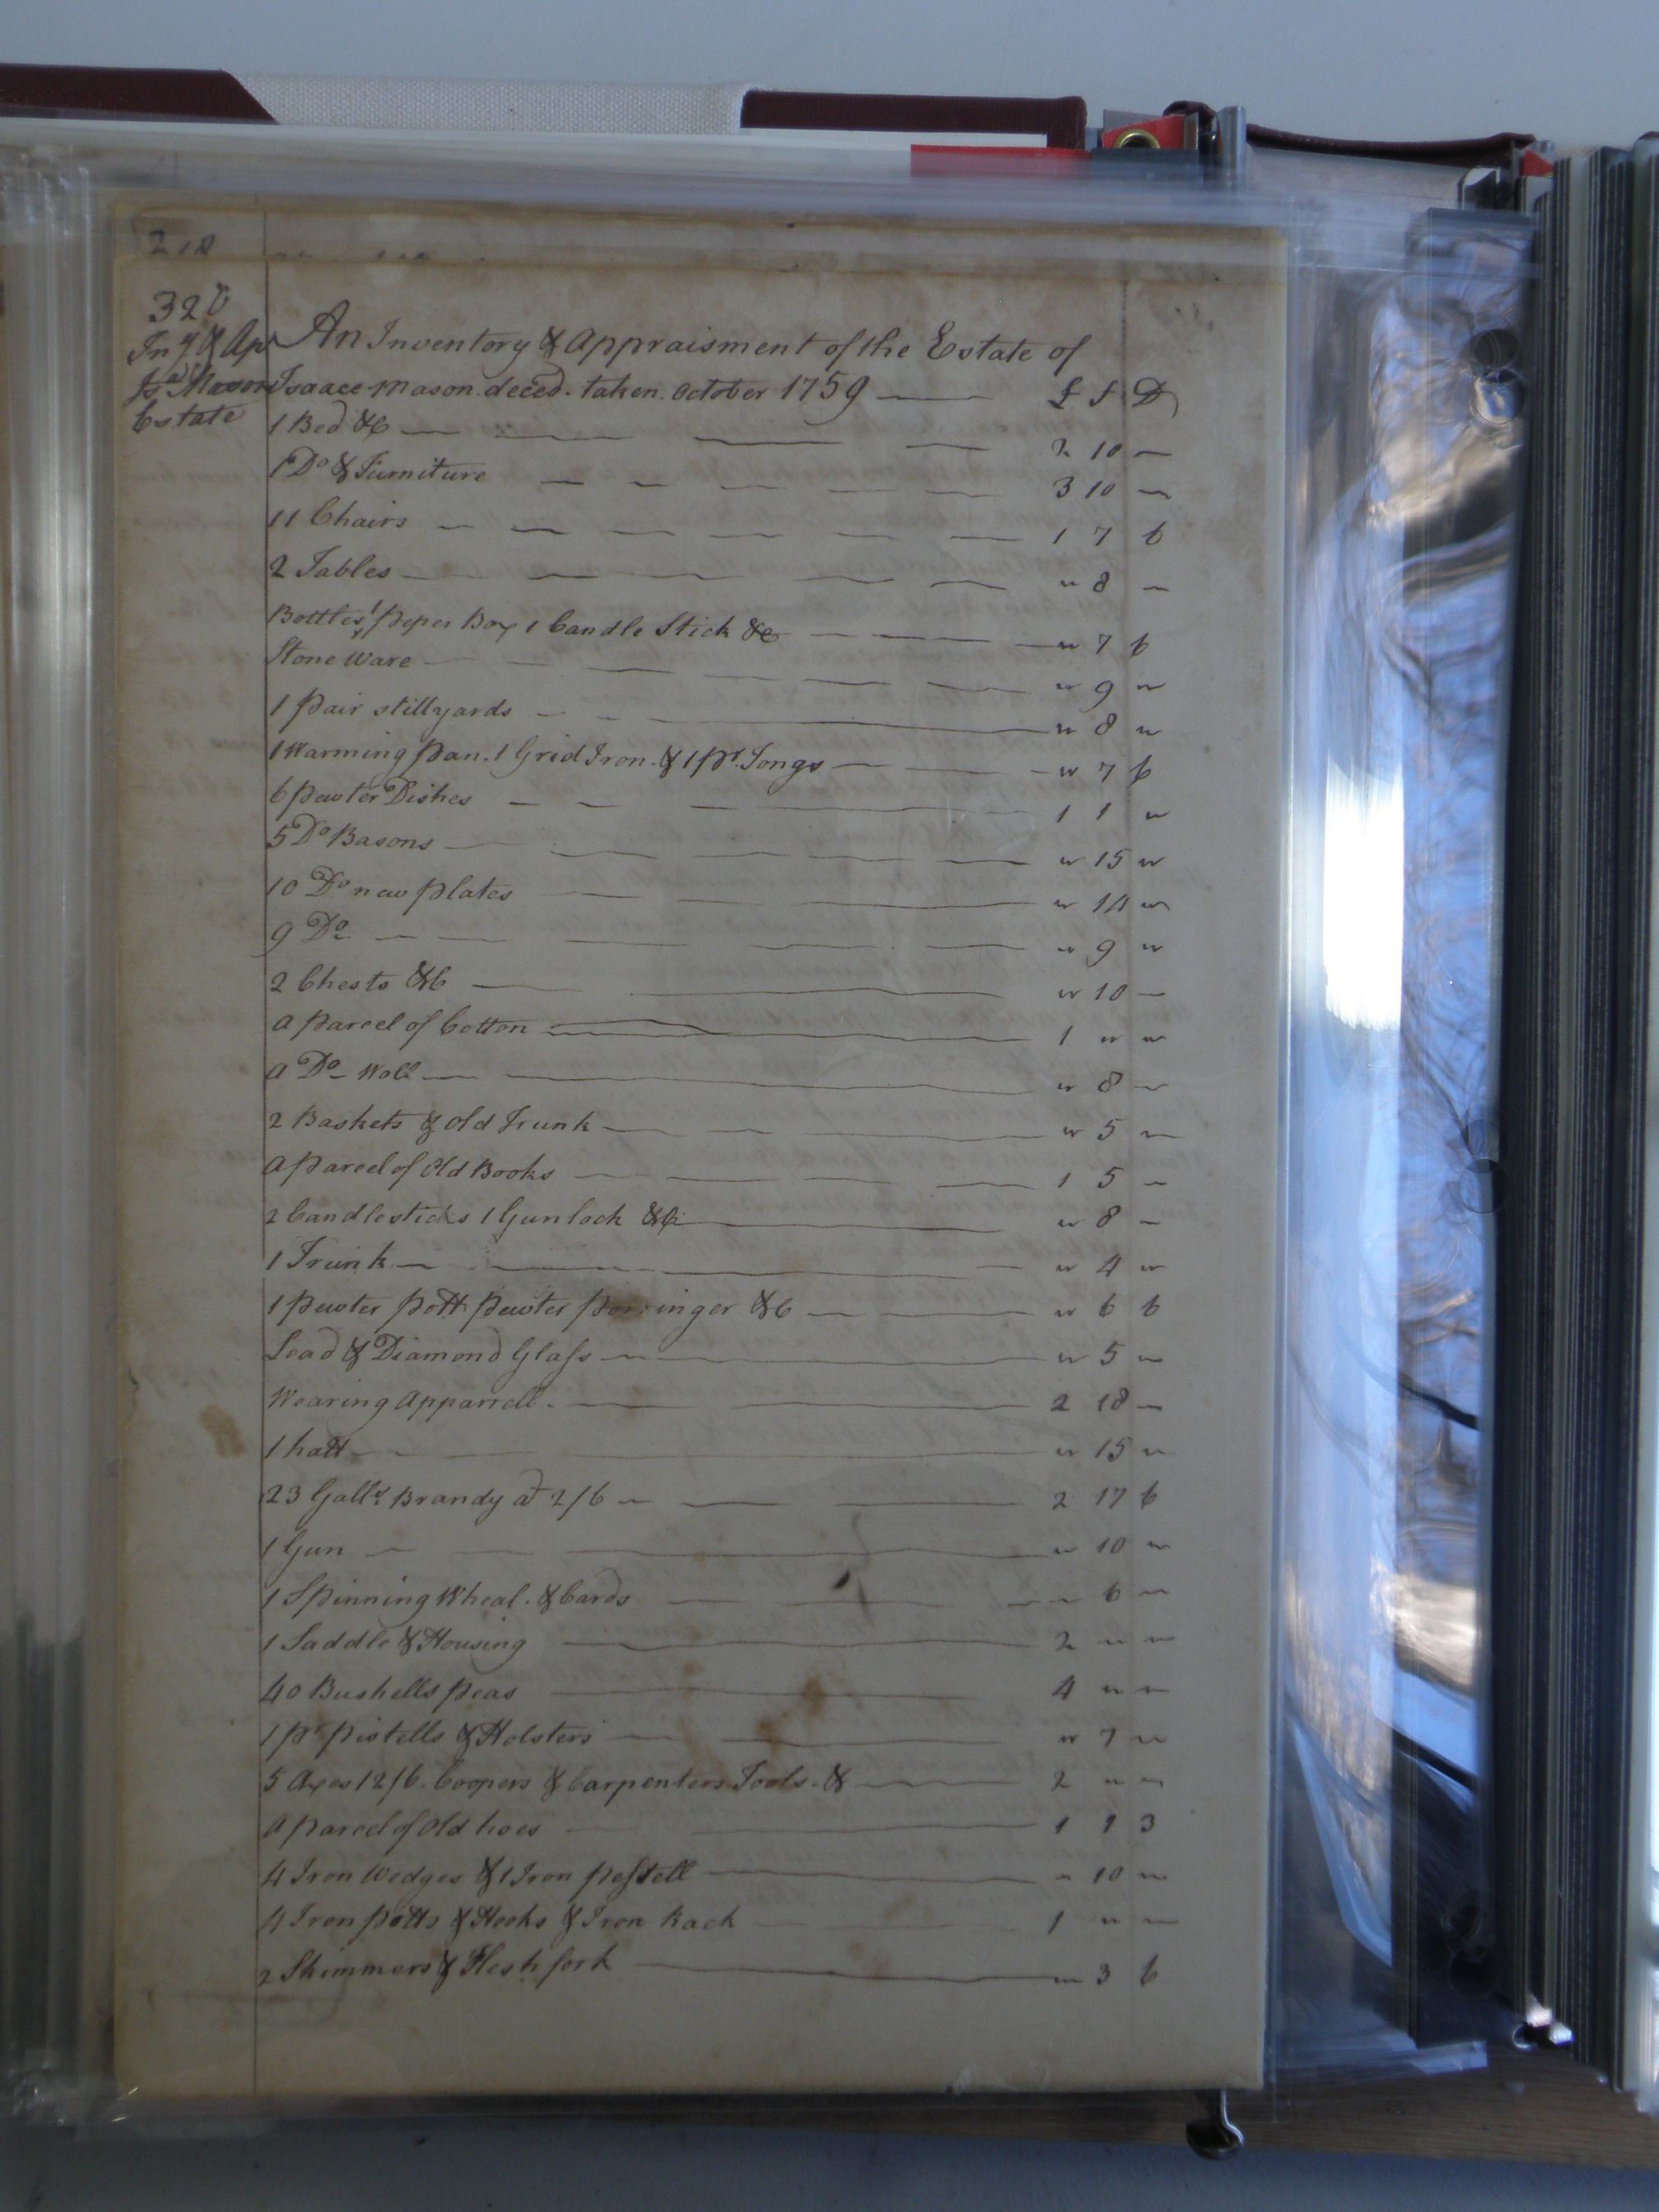 320
Inv & Ap
Is Mason
Estate
An Inventory & Appraisment of the Estate of
Isaace Mason deced. taken October 1759 — £ S D
1 Bed &C — 2 10 —
1 Do & Furniture — 3 10 —
11 Chairs — 1 7 6
2 Tables — " 8 —
Bottles, 1 peper Box 1 Candle Stick &c — " 7 6
Stone Ware — " 9 "
1 pair stillyards — " 8 "
1 Warming pan. 1 Grid Iron. & 1 pr. Tongs — " 7 6
6 pewter Dishes — 1 1 "
5 Do Basons — " 15 "
10 Do new plates — " 14 "
9 Do — " 9 "
2 Chests &C — " 10 —
a parcel of Cotton — 1 " "
a Do Woll — " 8 —
2 Baskets & Old Trunk — " 5 —
a parcel of Old Books — 1 5 —
2 Candlesticks 1 Gun lock &C — " 8 —
1 Trunk — " 4 "
1 pewter pott pewter porringer &C — " 6 6
Lead & Diamond Glass — " 5 —
Wearing Apparrell. — 2 18 —
1 hatt — " 15 "
23 Galls. Brandy at 2/6 — 2 17 6
1 Gun — " 10 "
1 Spinning Wheal. & Cards — " 6 "
1 Saddle & Housing — 2 " "
40 Bushells peas — 4 " "
1 pr pistells & Holsters — " 7 "
5 Axes 12/6. Coopers & Carpenters Tools. & — 2 " "
a parcel of Old hoes — 1 1 3
4 Iron Wedges & 1 Iron pestell — " 10 "
4 Iron potts & Hooks & Iron Rack — 1 " "
2 Skimmers & Flesh fork — " 3 6